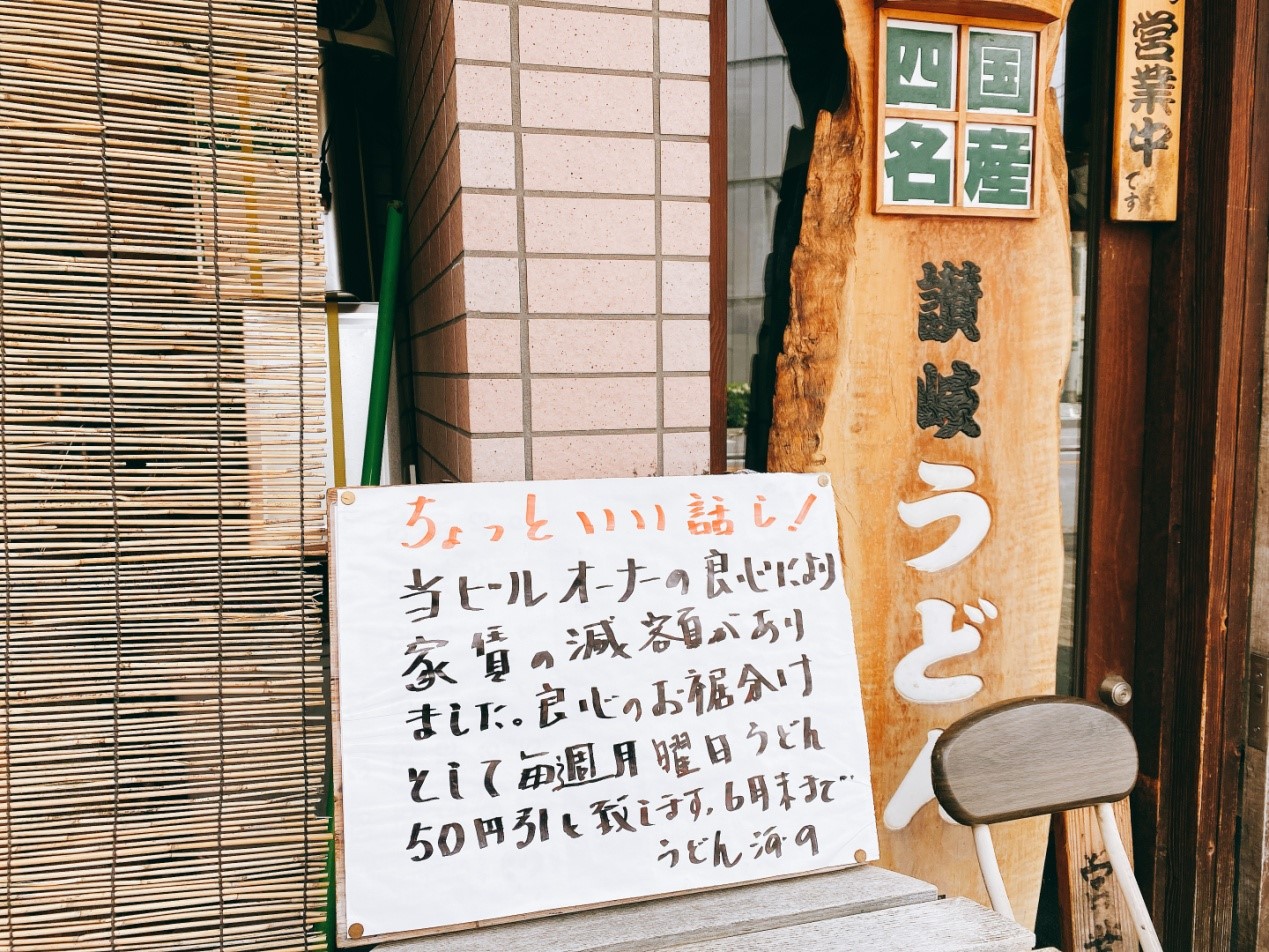 四国
名産
讃岐うどん
営業中です
ちょっといい話し!
当ビールオーナーの良心により
家賃の減額があり
ました。良心のお裾分け
として毎週月曜日うどん
50円引と致します。6月末まで
うどん河の
営業